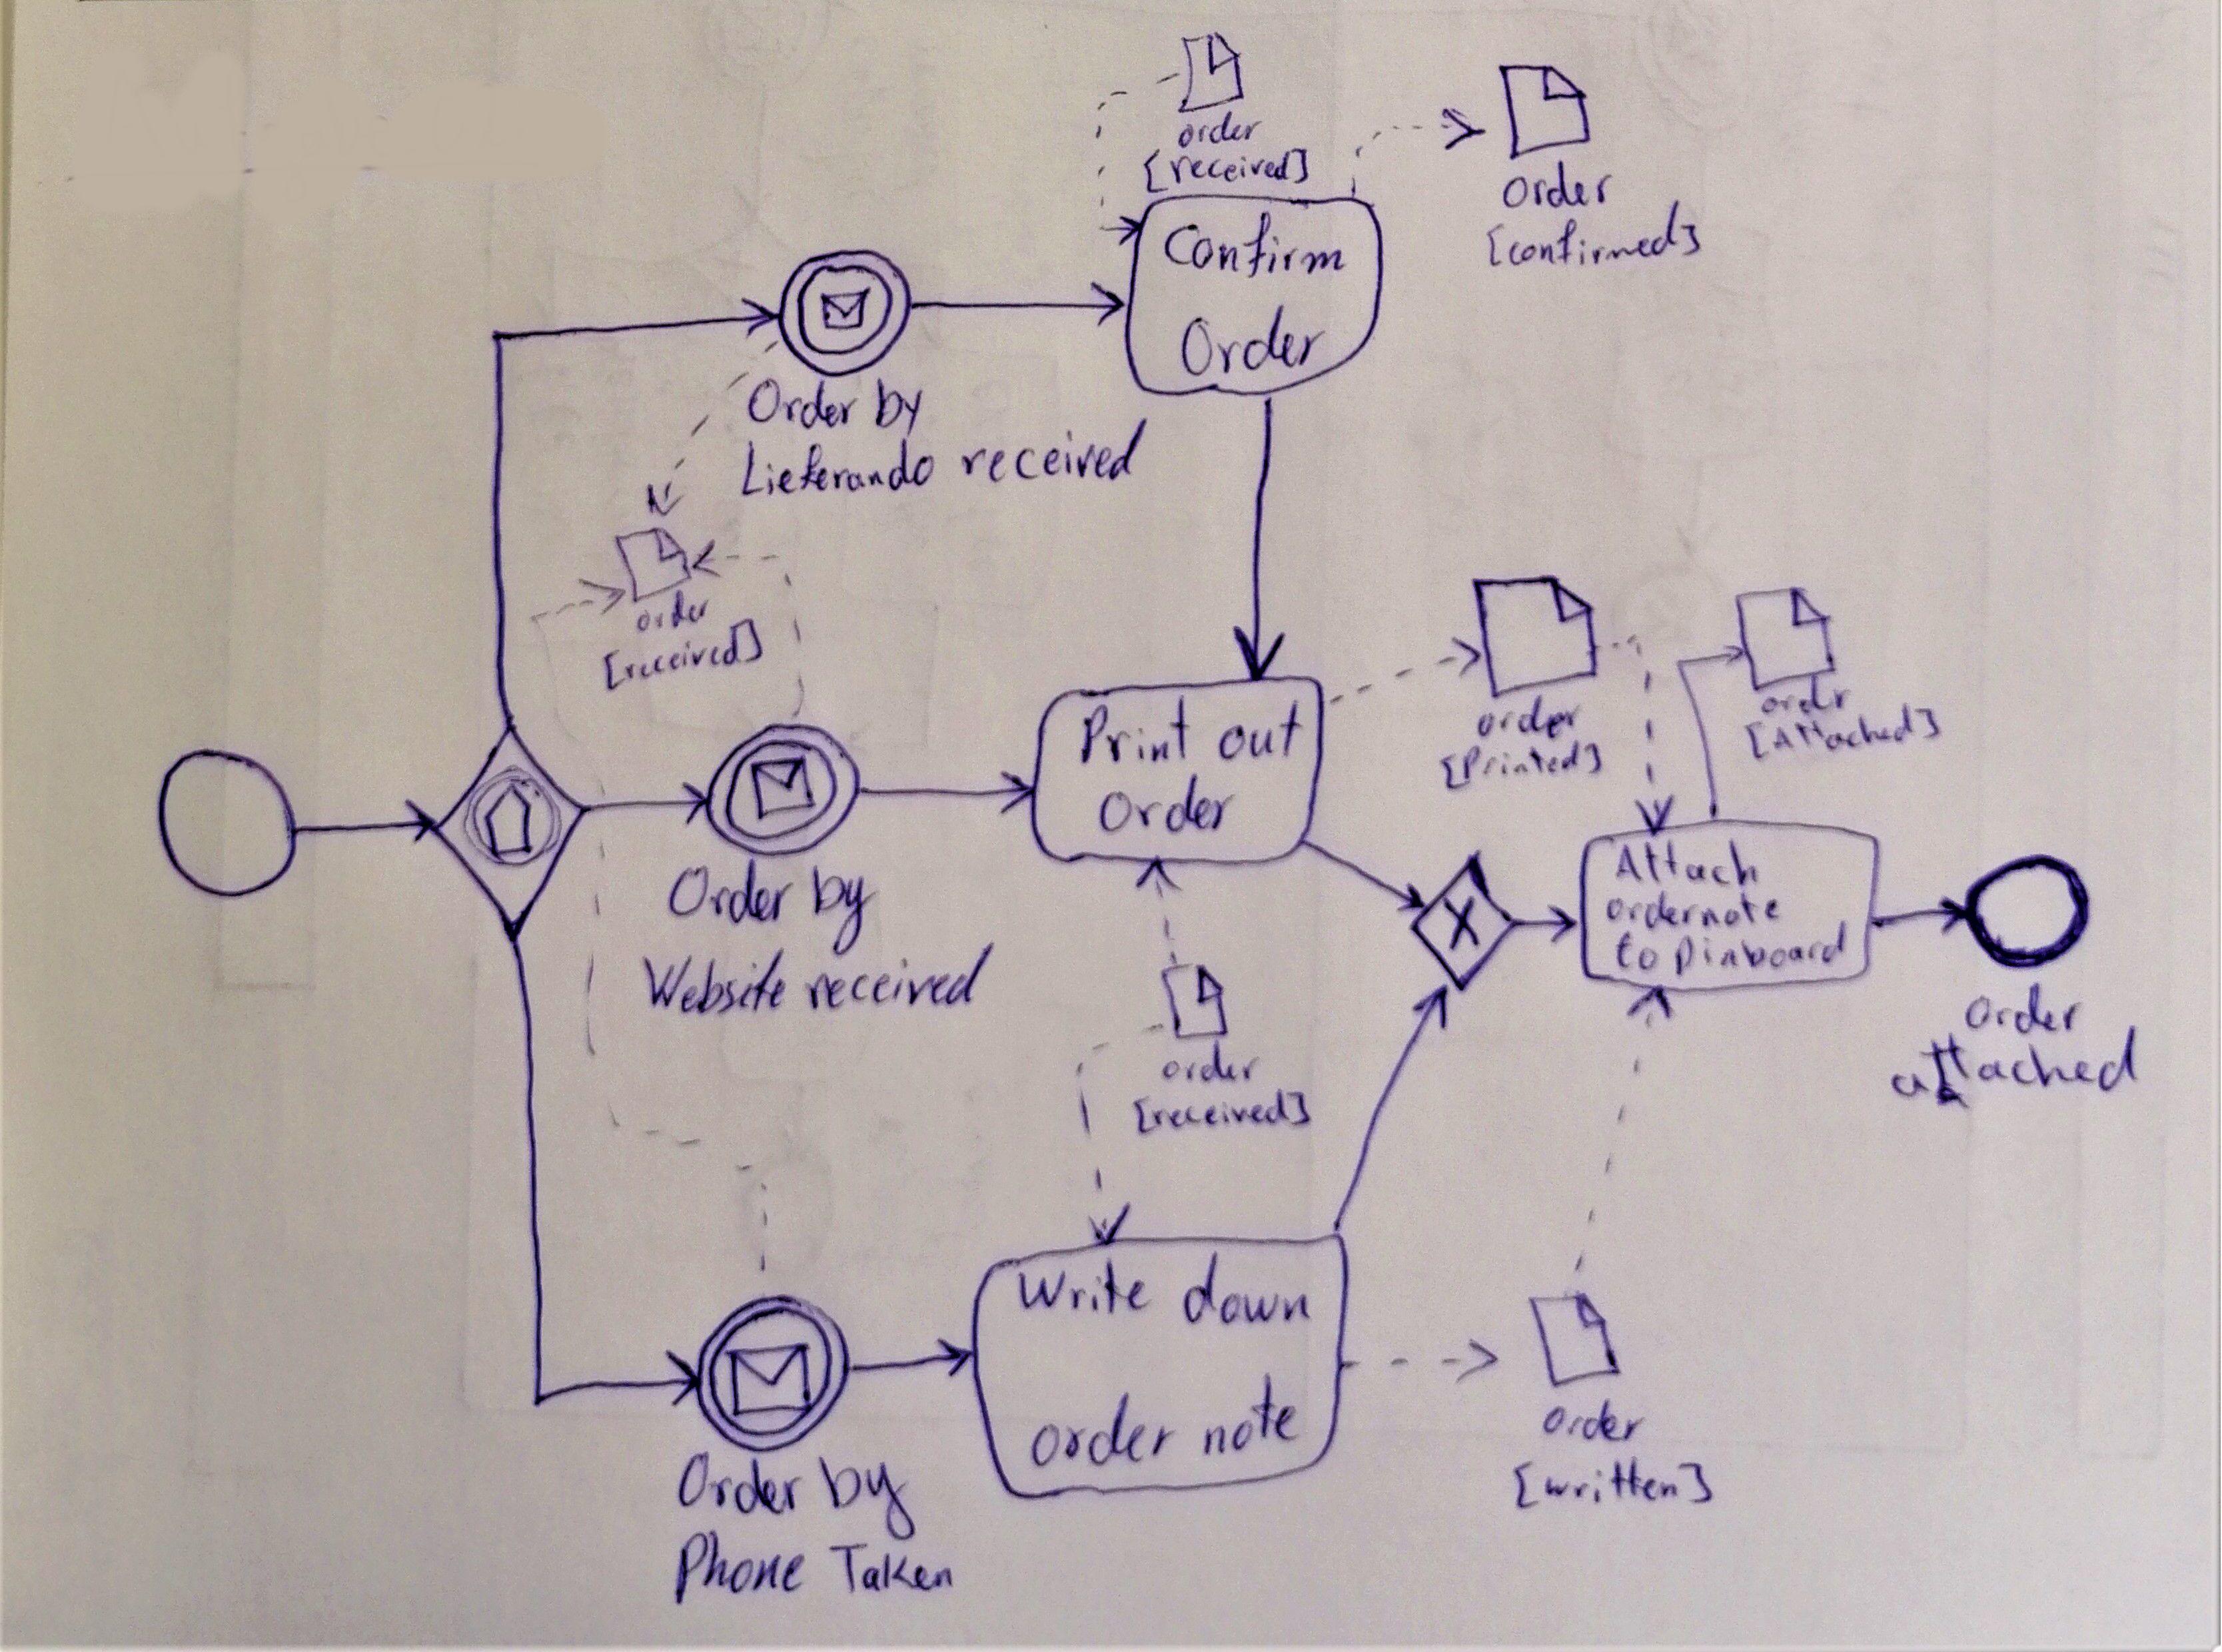 order
[received]
order
[confirmed]
Confirm
Order
Order by
Lieferando received
order
[received]
Print out
order
order
[Printed]
order
[Attached]
Order by
Website received
X
Attach
ordernote
to Pinboard
order
attached
order
[received]
Write down
order note
order
[written]
Order by
Phone Taken